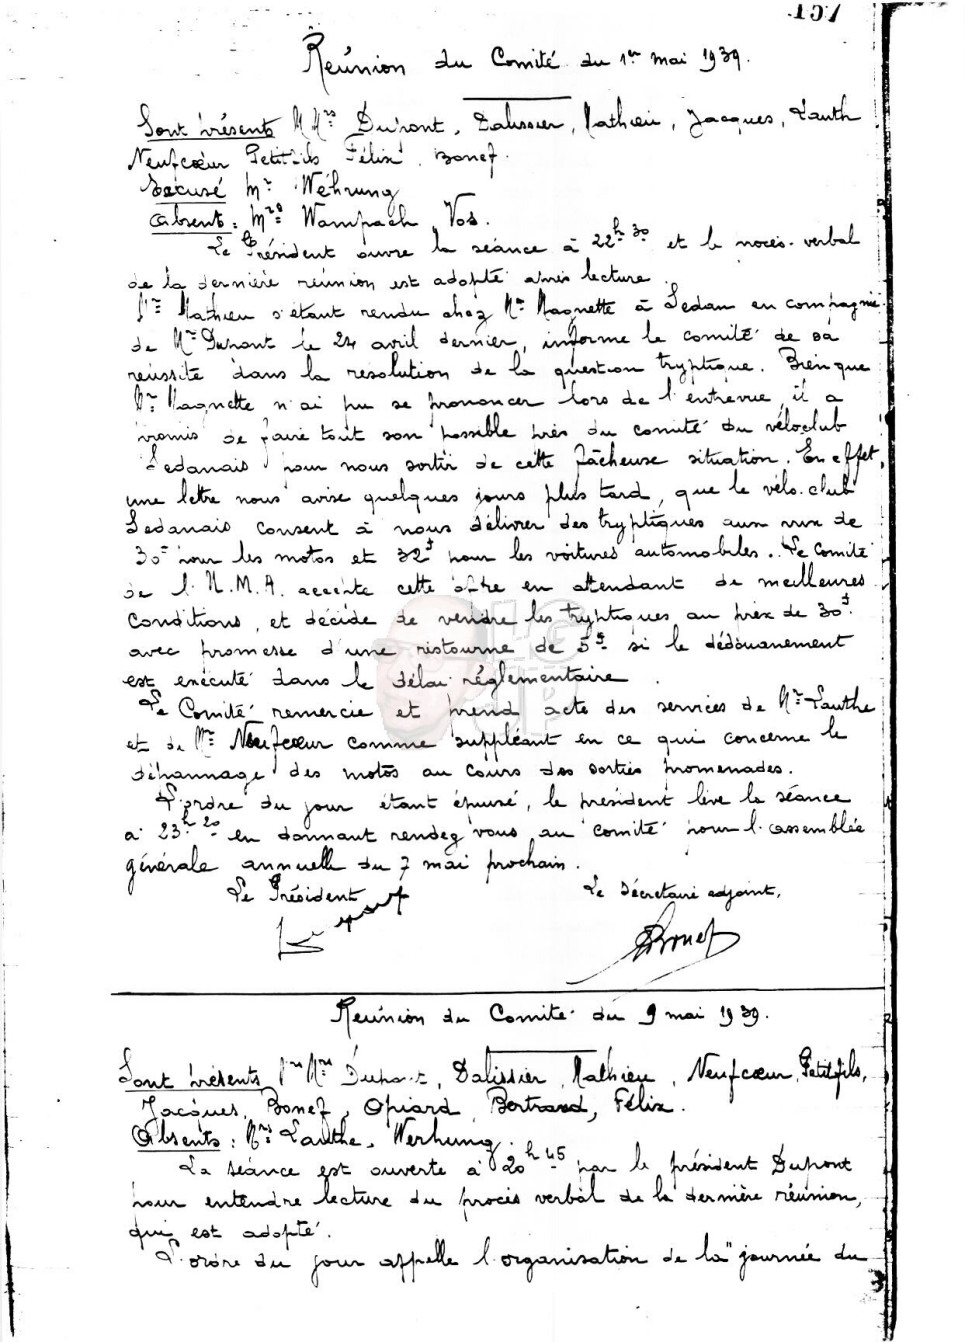 151
Réunion du Comité du 1er mai 1939.
Sont présents M Mrs Dupont, Dalissier, Mathieu, Jacques, Lauth
Neufcœur Petitfils Félix, Bonef.
Excusé Mr Wéhrung
Absent: Mrs Wampach, Vos.
Le Président ouvre la séance à 22h 30 et le procès-verbal
de la dernière réunion est adopté après lecture.
Mr Mathieu s'étant rendu chez Mr Magnette à Sedan en compagnie
de Mr Dupont le 24 avril dernier, informe le comité de sa
réussite dans la résolution de la question tryptique. Bien que
Mr Magnette n'ai pu se prononcer lors de l'entrevue, il a
promis de faire tout son possible près du comité du véloclub
Sedanais pour nous sortir de cette fâcheuse situation. En effet,
une lettre nous avise quelques jours plus tard, que le vélo-club
Sedanais consent à nous délivrer des tryptiques aux prix de
30 pour les motos et 32f pour les voitures automobiles. Le Comité
de l'U.M.A. accepte cette offre en attendant de meilleures
conditions, et décide de vendre les tryptiques au prix de 30f
avec promesse d'une ristourne de 5f si le dédouanement
est exécuté dans le délai réglementaire.
Le Comité remercie et prend acte des services de Mr Lauthe
et de Mr Neufcœur comme suppléant en ce qui concerne le
dépannage des motos au cours des sorties promenades.
L'ordre du jour étant épuisé, le président lève la séance
à 23h 20 en donnant rendez vous au comité pour l'assemblée
générale annuelle du 7 mai prochain.
Le Président Le Secrétaire adjoint,
Bonef
Réunion du Comité du 9 mai 1939.
Sont présents Mrs Dupont, Dalissier, Mathieu, Neufcœur, Petitfils,
Jacques, Bonef, Opiard, Bertrand, Félix.
Absents: Mrs Lauthe, Werhung.
La séance est ouverte à 20h 45 par le président Dupont
pour entendre lecture du procès verbal de la dernière réunion,
qui est adopté.
L'ordre du jour appelle l'organisation de la "journée du